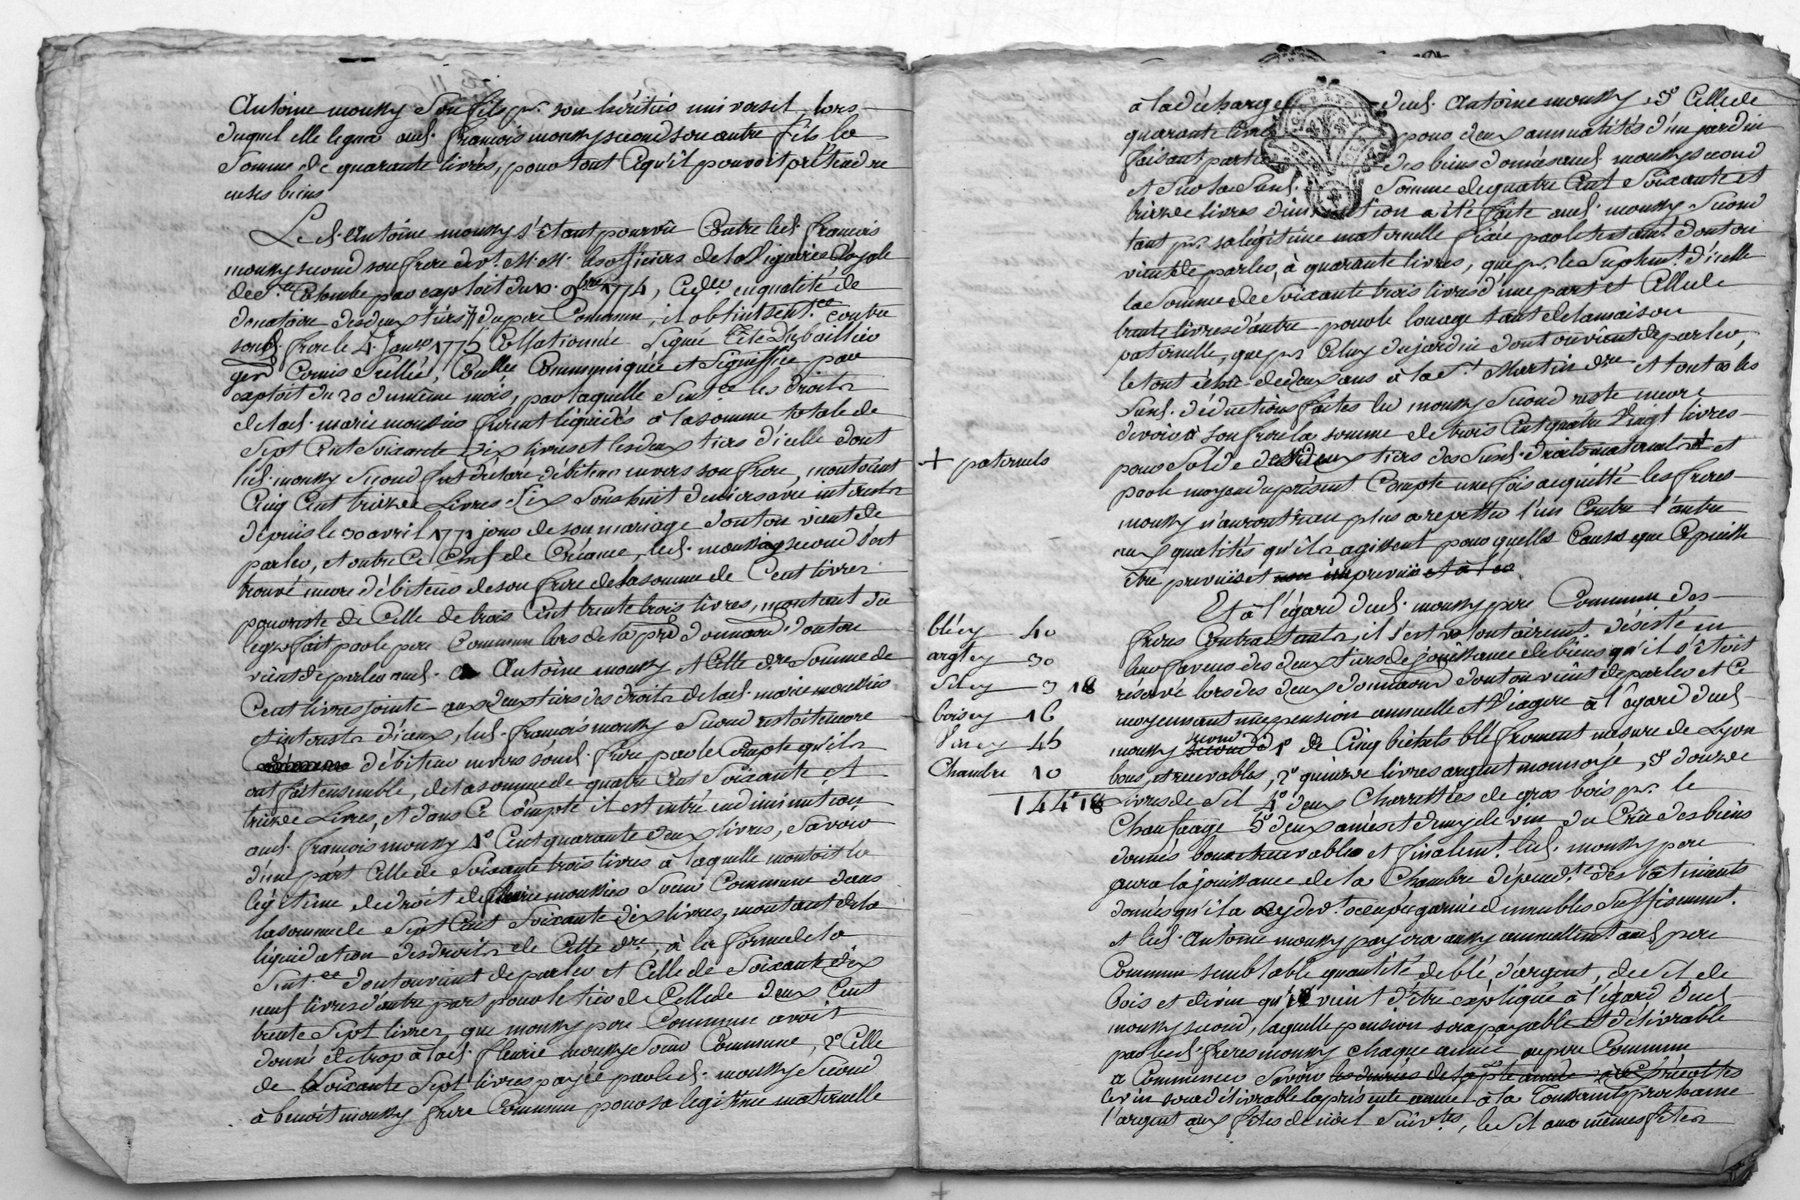 Antoine mousy Son fils pr. son héritier universel, lors
duquel elle legua aud. françois mousy second son autre fils la
Somme de quarante livres, pour tout ce qu'il pouvoit prétendre
en ses biens
Led. Antoine mousy s'étant pourvû Contre led. françois
mousy second son frere devt. MM. les officiers de la Viguerie Royale
de Ste. Colombe par exploit du 10. 9bre 1774, en qualité de
donataire des deux tiers du pere Commun, il obtint sentce. contre
sond. frere le 4. Janvr. 1775 Collationnée Signée
Comis Scellée, Communiquée et Signiffiée par
exploit du 20 du même mois, par laquelle Sentce. les droits
de lad. marie moussier furent liquidés à la somme totale de
Sept Cent Soixante dix livres et les deux tiers d'icelle dont
led. mousy Second fut déclaré débiteur envers son frere, montoient
Cinq Cent treize Livres Six Sous huit deniers avec interests
depuis le 30 avril 1771 jour de son mariage dont on vient de
parler, et outre ce Chef de Créance, led. mousy second s'est
trouvé encore débiteur de son frere de la somme de Cent livres
pour reste de Celle de trois Cent trente trois livres, montant du
legs fait par le pere Commun lors de la donaon. dont on
vient de parler aud. Antoine mousy et Cette dre. Somme de
Cent livres jointe aux deux tiers des droits de lad. marie moussier
et interests d'iceux, led. françois mousy Second restoit encore
débiteur envers sond. frere par le Compte qu'ils
ont fait ensemble, de la somme de quatre Cent Soixante et
treize Livres, et dans ce Compte il est entré en diminution
aud. françois mousy 1o Cent quarante deux livres, Savoir
d'une part Celle de Soixante trois livres à laquelle montoit la
légitime de droit de fleurie moussier Soeur Commune dans
la somme de Sept Cent Soixante dix livres, montant de la
liquidation des droits de Cette dre., à la forme de la
Sentce. dont on vient de parler et Celle de Soixante dix
neuf livres d'autre part pour le tier de Celle de deux Cent
trente Sept livres que mousy pere Commun avoit
donné de trop à lad. fleurie mousy Soeur Commune, 2o Celle
de Soixante Sept livres payée par led. mousy Second
à benoit mousy frere Commun pour sa legitime maternelle
à la décharge dud. Antoine mousy, 3o Celle de
quarante livres pour deux annualités d'un jardin
faisant partie des biens donnés aud. mousy second
et Sur la Susd. Somme de quatre Cent Soixante et
treize livres diminution a été faite aud. mousy Second
tant pr. sa légitime maternelle fixée par le testamt. dont on
vient de parler, à quarante livres, que pr. le Suplemt. d'icelle
la Somme de Soixante trois livres d'une part et Celle de
trente livres d'autre pour le louage tant de la maison
paternelle, que pr. Celuy du jardin dont on vient de parler,
le tout échu de deux ans à la St. Martin dre. et toutes les
Susd. déductions faites led. mousy Second reste encore
devoir à son frere la somme de trois Cent quatre Vingt livres
+ paternels
pour Solde des deux tiers des Susd. droits maternels + et
par le moyen du présent Compte une fois acquitté les freres
mousy n'auront rien plus a repetter l'un Contre l'autre
aux qualités qu'ils agissent pour quelles Causes que Ce puisse
être prevuës et imprevuës
Et à l'égard dud. mousy pere Commun des
freres Contractants, il s'est volontairement désisté en
leur faveur des deux tiers de jouissance de biens qu'il s'étoit
reservé lors des deux donnaons. dont on vient de parler et Ce
moyennant une pension annuelle et Viagere à l'égard dud.
mousy second 1o de Cinq bichets blé froment mesure de Lyon
bons, et recevables, 2o quinze livres argent monnoyé, 3o douze
livres de Sel 4o deux Charretées de gros bois pr. le
Chaufaage 5o deux anées et demy de vin du Crû des biens
donnés bon et recevable et finalemt. led. mousy pere
aura la jouissance de la Chambre dépendte. des bâtiments
donnés qu'il a cy devt. occupée garnie de meubles Suffisemment.
et led. Antoine mousy payera aussy annuellement aud. pere
Commun semblable quantité de blé d'argent, de Sel de
bois et de vin qu'il vient d'être expliqué à l'égard dud.
mousy second, laquelle pension sera payable et delivrable
par lesd. freres mousy chaque année au pere Commun
a Commencer Savoir
Le vin sera délivrable la présente année à la Toussaint prochaine
l'argent aux fêtes de noël Suivtes., le Sel aux mêmes fêtes
bléey 40
argtey 30
Seley 3 18
boisey 16
Viney 45
Chambre 10
144 18